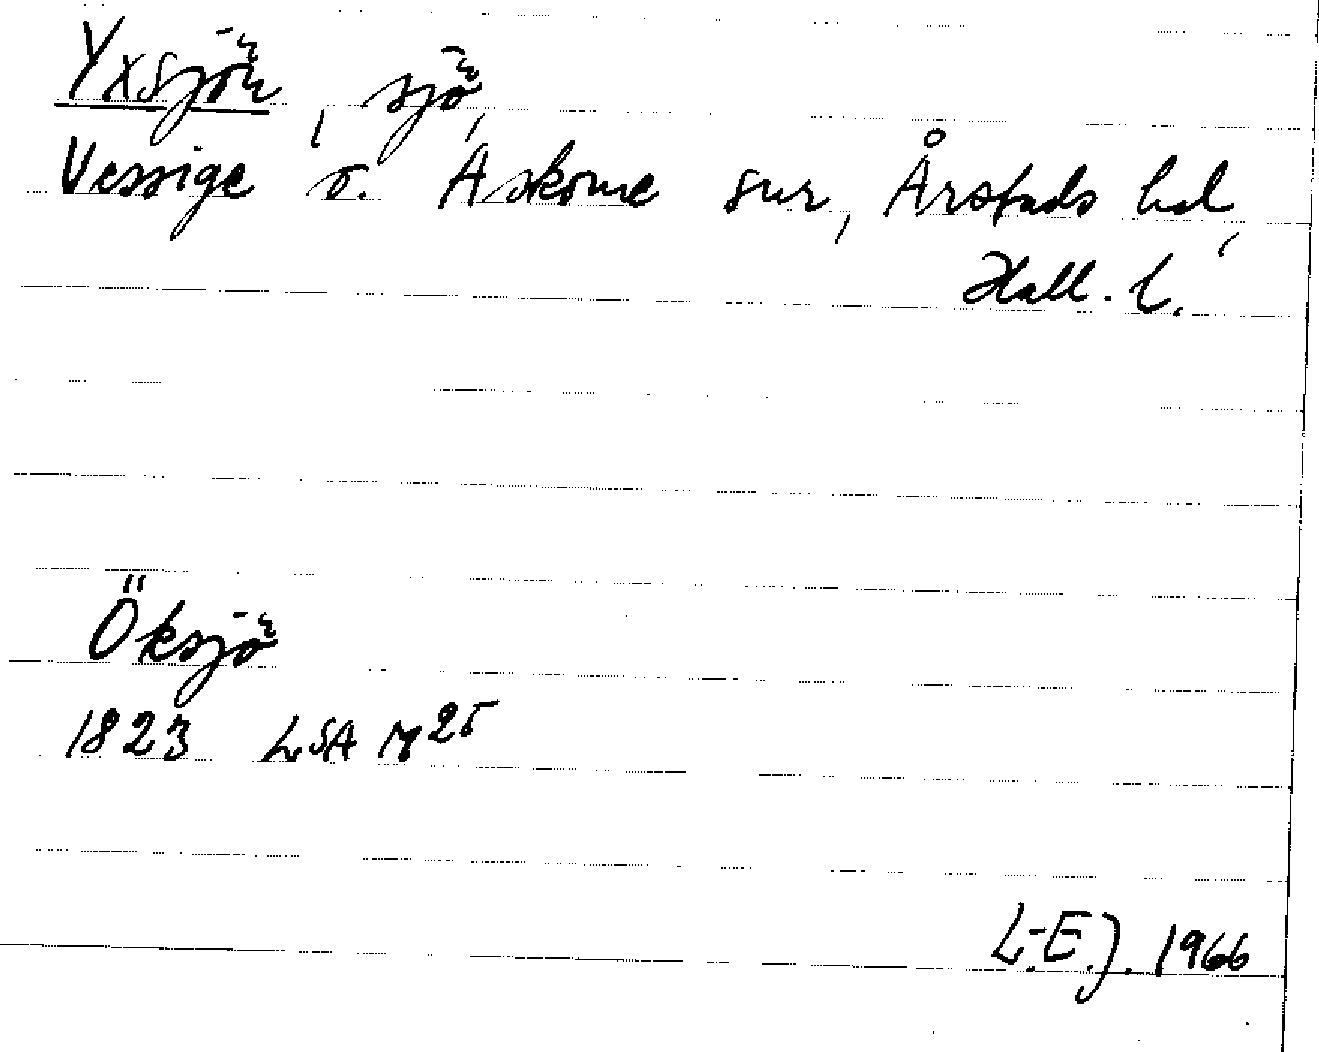 Yxsjön, sjö,
Vessige o. Askome snr, Årstads hd,
Hall. l.
Öksjö
1823 LSA M25
L-E.J. 1966